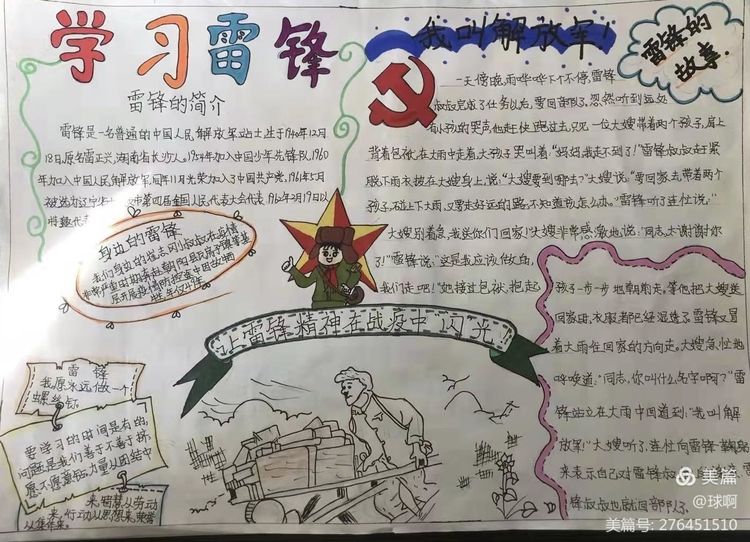 学习雷锋
雷锋的简介
雷锋是一名普通的中国人民解放军战士,生于1940年12月
18日,原名雷正兴,湖南省长沙人。1954年加入中国少年先锋队,1960
年加入中国人民解放军,同年11月光荣加入了中国共产党。1961年5月
被选为辽宁省
第四届全国人民代表大会代表。1962年2月19日以
特邀代表
身边的雷锋
让雷锋精神在战疫中“闪”光
雷锋
我愿永远做一个
螺丝钉。
要学习的时间是有的,
问题是我们善不善于挤,
愿不愿意钻,力量从团结中
来,智慧从劳动
来,行动从思想来,荣誉
从集体来。
我叫解放军!
雷锋的
故事.
一天傍晚,雨哗哗下个不停,雷锋
叔叔完成了任务以后,要回部队了,忽然听到远处
有小孩的哭声,他赶快跑过去,只见一位大嫂带着两个孩子,肩上
背着包袱,在大雨中走着,大孩子哭叫着:“妈妈,我走不到了!”雷锋叔叔赶紧
脱下雨衣,披在大嫂身上,说:“大嫂要到哪去?”大嫂说:“要回家去,带着两个
孩子,碰上下大雨,又要走好远的路,不知道该怎么办。”雷锋听了连忙说:“
大嫂别着急,我送你们回家!”大嫂非常感激地说:“同志,太谢谢你
了!”雷锋说:“这是我应该做的,
我们走吧!”她接过包袱,抱起
孩子一步一步地朝前走。等他把大嫂送
回家时,衣服都已经湿透了,雷锋又冒
着大雨往回家的方向走。大嫂急忙地
呼唤道:“同志,你叫什么名字啊?”雷
锋站立在大雨中回道到:“我叫解
放军!”大嫂听了,连忙向雷锋鞠躬
来表示自己对雷锋叔叔
锋叔叔也就回部队了。
美篇
@球啊
美篇号: 276451510